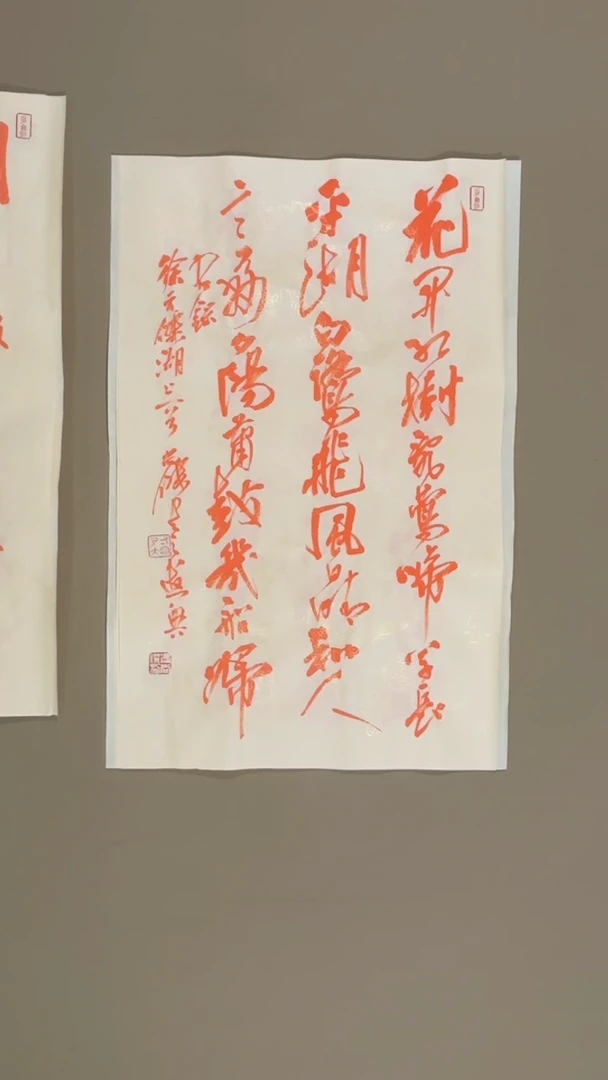 花開紅樹亂鶯啼草長
平湖白鷺飛風日晴和人
意好夕陽簫鼓幾船歸
書錄
徐元傑湖上